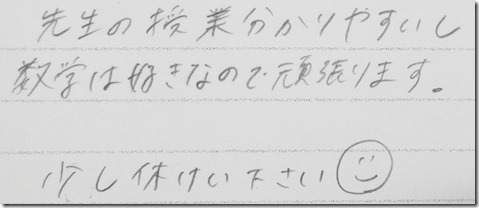 先生の授業分かりやすいし
数学は好きなので頑張ります。
少し休けい下さい